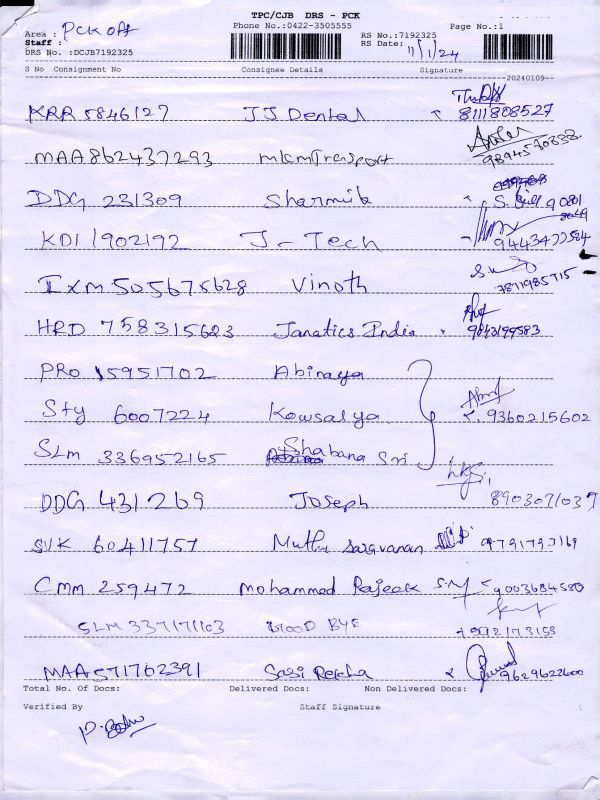 TPC/CJB DRS - PCK
Phone No.:0422-3505555 Page No.:1
Area : PCK off
Staff :
RS No.:7192325
RS Date: 11/1/24
DRS No. :DCJB7192325
S No Consignment No Consignee Details Signature
20240109
KRR 5846127 JJ Dental 8111808527
MAA 862437293 mkm Transport
DDG 231309 Sharmik
KDI 1902192 J-Tech
IXM 505675628 Vinoth 7871985715
HRD 758315623 Janatics India 9843199583
PRO 15951702 Abinaya
Sty 6007224 Kowsalya 9360215602
SLM 336952165 Shabana Sri
DDG 431269 Joseph
SVK 60411757 Muthu Saravanan
CMM 259472 Mohammed Rajeek
SLM 337171103
MAA 571762391 Sasi Rekha 9629622600
Total No. Of Docs: Delivered Docs: Non Delivered Docs:
Verified By Staff Signature